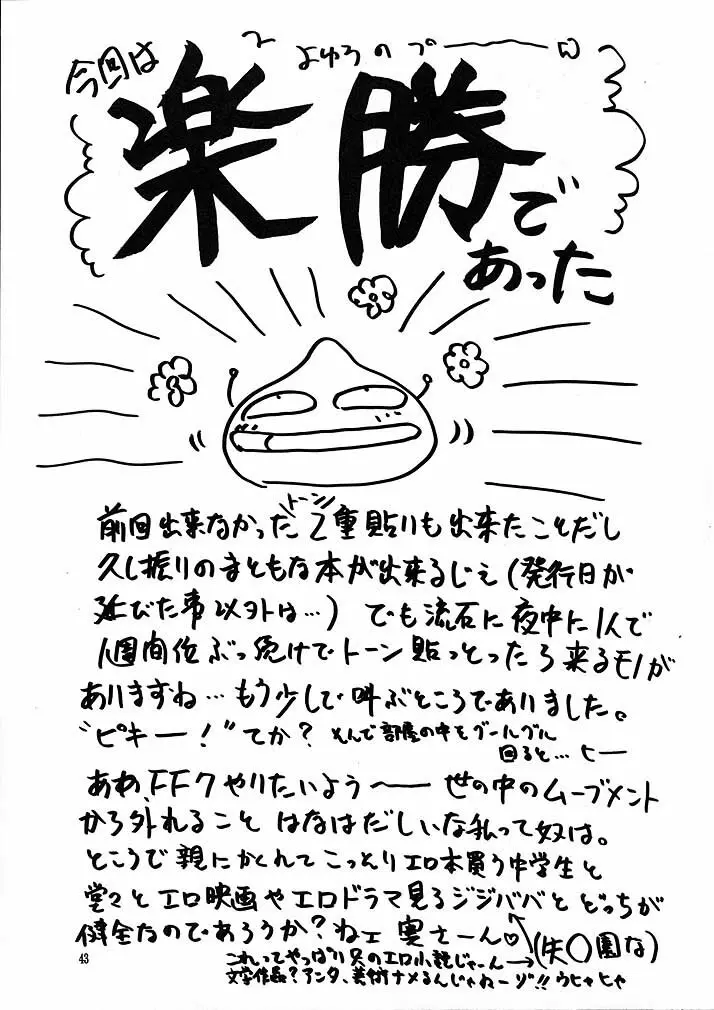 今回は
よゆうのプーーーw
楽勝で
あった
トーン
前回出来なかった2重貼りも出来たことだし
久し振りのまともな本が出来るじえ(発行日が
延びた事以外は…)でも流石に夜中に1人で
1週間位ぶっ続けでトーン貼っとったら来るモノが
ありますね…もう少しで叫ぶところでありました。
"ピキー!"てか?そんで部屋の中をグールグル
回ると…ヒー
あわ、FF7やりたいよう〜 世の中のムーブメント
から外れること はなはだしいな私って奴は。
ところで親にかくれてこっとりエロ本買う中学生と
堂々とエロ映画やエロドラマ見るジジババとどっちが
健全なのであろうか?ねェ奥さーん♡(失〇園な)
これってやっぱり只のエロ小説じゃーん→
文学作品?アンタ、芸術ナメるんじゃねーゾ!!ウヒャヒャ
43